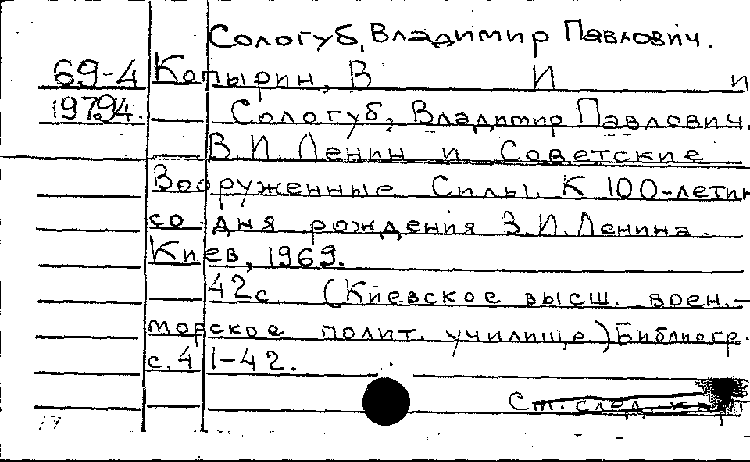 Сологуб, Владимир Павлович.
69-4 Копырин, В И и
19794. Сологуб, Владимир Павлович.
В.И. Ленин и Советские
Вооруженные Силы. К 100-лети
со дня рождения В.И. Ленина.
Киев, 1969.
42с (Киевское высш. воен.-
морское полит. училище) Библиогр.
с. 41-42.
См. след. карт